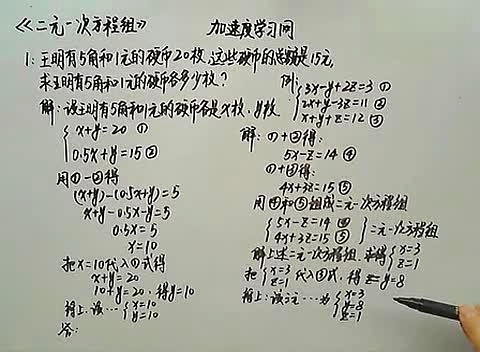 《二元一次方程组》 加速度学习网
1: 王明有5角和1元的硬币20枚,这些硬币的总数是15元,
求王明有5角和1元的硬币各多少枚?
解:设王明有5角和1元的硬币各是x枚、y枚
x+y=20 ①
0.5x+y=15 ②
用①-②得
(x+y)-(0.5x+y)=5
x+y-0.5x-y=5
0.5x=5
x=10
把x=10代入①式得
x+y=20
10+y=20,得y=10
综上:该…{x=10
y=10
答:
例:{3x-y+2z=3 ①
2x+y-3z=11 ②
x+y+z=12 ③
解:①+②得:
5x-z=14 ④
①+③得:
4x+3z=15 ⑤
用④和⑤组成二元一次方程组
{5x-z=14 ④
4x+3z=15 ⑤}二元一次方程组
解上述二元一次方程组,求得{x=3
z=1
把{x=3
z=1代入③式,得 y=8
综上:该三元…为{x=3
y=8
z=1